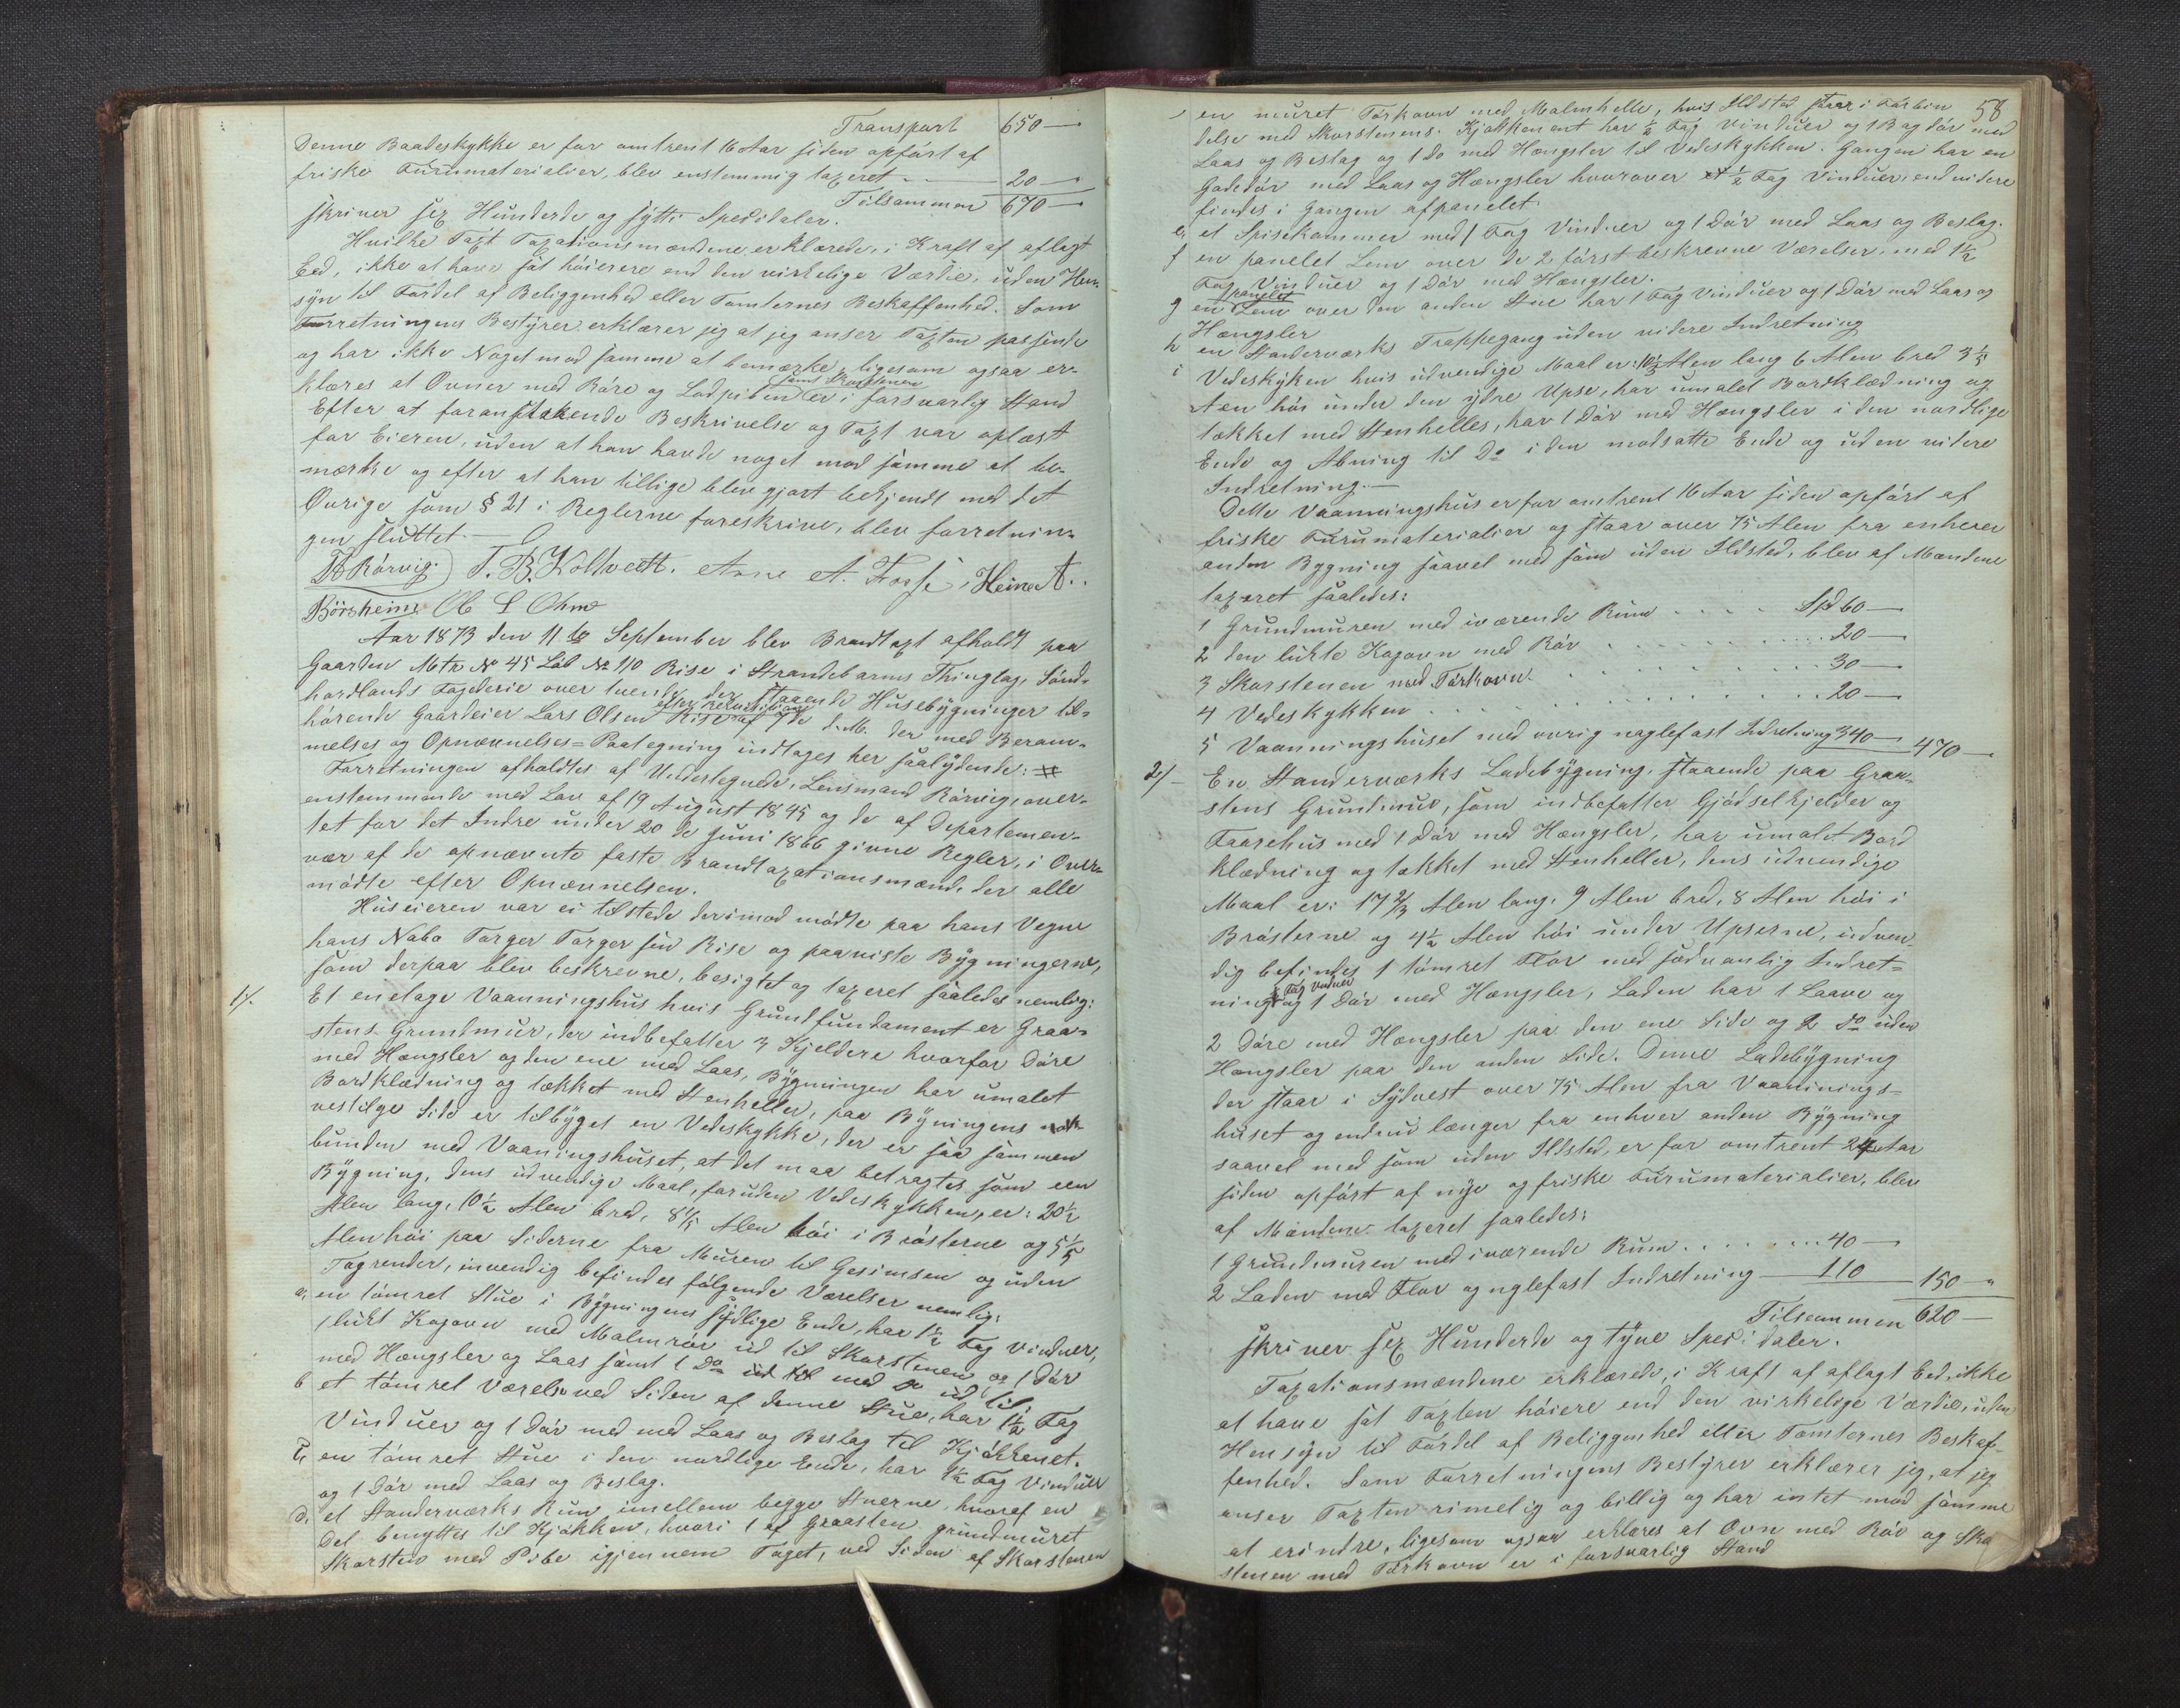 Transport 650 —
Denne Baadeskykke er for omtrent 16 Aar siden opført af
friske Furumaterialier, blev enstemmig taxeret — 20 —
Tilsammen 670 —
skriver sex Hunderde og sytti Speditaler.
Hvilke Taxt Taxationsmændene erklærede, i Kraft af aflagt
Eed, ikke at have sat høierere end den virkelige Værdie, uden Hen-
syn til Fordel af Beliggenhed eller Tomternes Beskaffenhed. Som
Forretningens Bestyrer erklærer jeg at jeg anser Taxten passende
og har ikke Noget mod samme at bemærke, ligesom ogsaa er-
klæres at Ovner med Røre og Ladpiben samt Skorstenen er i forsvarlig Stand
Efter at foranstaaende Beskrivelse og Taxt var oplæst
for Eieren, uden at han havde noget mod samme at be-
mærke og efter at han tillige blev gjort bekjendt med det
Øvrige som § 21 i Reglerne foreskriver, blev forretnin-
gen sluttet. —
Rørvig. T. B. Koldveett. Arne A. Fosse, Heine A.
Börsheim Ole L Ohma
Aar 1873 den 11te September blev Brandtaxt afholdt paa
Gaarden Mtr No 45 Løb No 110 Rise i Strandebarms Thinglag, Sönd-
hordlands Fogderie over tvende der staaende Husebygninger til-
hørende Gaardeier Lars Olsen Rise efter Rekvisition af 7de d. M. der med Beram-
melses og Opnævnelses=Paategning indtages her saalydende: #
Forretningen afholdtes af Undertegnede, Lensmand Rörvig, over-
enstemmende med Lov af 19 August 1845 og de af Departemen-
tet for det Indre under 20de Juni 1866 givne Regler, i Over-
vær af de opnævnte faste Brandtaxationsmænd, der alle
mødte efter Opnævnelsen.
Huseieren var ei tilstede derimod mødte paa hans Vegne
hans Nabo Torger Torgersen Rise og paaviste Bygningerne,
som derpaa blev beskrevne, besigtet og taxeret saaledes nemlig:
1/. Et enetage Vaanningshus hvis Grundfundament er Graa-
stens Grundmur, der indbefatter 3 Kjeldere hvorfor Døre
med Hængsler og den ene med Laas, Bygningen har umalet
Bordklædning og tækket med Stenheller, paa Bygningens
vestlige Side er tilbyget en Vedeskykke, der er saa sammen
bunden med Vaaningshuset, at det maa betragtes som een
Bygning, dens udvendige Maal, foruden Vedeskykken, er: 20½
Alen lang, 10½ Alen bred, 8 4/5 Alen høi i Brösterne og 5 1/5
Alen høi paa Siderne fra Muren til Gesimsen og uden
Tagrender, invendig befindes følgende Værelser nemlig:
a, en tømret Stue i Bygningens sydlige Ende, har 1½ Fag Vinduer,
1 lukt Kogovn med Malmrör ud til Skorstenen og 1 Dør
med Hængsler og Laas samt 1 Do ud til
b et tømret Værelse ved Siden af denne Stue, har 1½ Fag
Vinduer og 1 Dør med med Laas og Beslag til Kjøkkenet.
c, en tømret Stue i den nordlige Ende, har 1½ Fag Vinduer
og 1 Dør med Laas og Beslag.
d, et Standerværks Rum imellem begge Stuerne, hvoraf en
Del benyttes til Kjøkken, hvori 1 af Graasten grundmuret
Skorsten med Pibe igjennem Taget, ved Siden af Skorstenen
58
en muret Törkovn med Malmhelle, hvis Ildsted staar i Forbin
delse med Skorstenens. Kjøkkenent har ½ Fag Vinduer og 1 Bagdør med
Laas og Beslag og 1 Do med Hængsler til Vedeskykken. Gangen har en
Gadedør med Laas og Hængsler hvorover et ½ Fag Vinduer, endvidere
findes i Gangen afpanelet
e, et Spisekammer med 1 Fag Vinduer og 1 Dør med Laas og Beslag.
f en panelet Lem over de 2 først beskrevne Værelser, med 1½
Fag Vinduer og 1 Dør med Hængsler.
g en panelet Lem over den anden Stue har 1 Fag Vinduer og 1 Dør med Laas og
Hængsler
h en Standerværks Trappegang uden videre Indretning
i Vedeskyken hvis udvendige Maal er: 10½ Alen lang 6 Alen bred 3 1/5
Alen høi under den ydre Upse, har umalet Bordklædning og
tækket med Stenhelles, har 1 Dør med Hængsler i den nordlige
Ende og Abning til Do i den modsatte Ende og uden videre
Indretning. —
Dette Vaanningshus er for omtrent 16 Aar siden opført af
friske Furumaterialier og staar over 75 Alen fra enhever
anden Bygning saavel med som uden Ildsted, blev af Mændene
taxeret saaledes:
1 Grundmuren med iværende Rum . . . . Spd 60 —
2 den lukte Kogovn med Rör . . . . . . 20 —
3 Skorstenen med Törkovn . . . . . . 30 —
4 Vedeskykken . . . . . . . . . 20 —
5 Vaanningshuset med øvrig naglefast Indretning 340 — 470 —
2/ — En Standerværks Ladebygning, staaende paa Graa-
stens Grundmur, som indbefatter Gjødselkjelder og
Faarehus med 1 Dør med Hængsler, har umalet Bord
klædning og tækket med Stenheller, dens udvendige
Maal er: 17 2/3 Alen lang, 9 Alen bred, 8 Alen høi i
Brösterne og 4½ Alen høi under Upserne, udven-
dig befindes 1 tømret Flor med sædvanlig Indret-
ning Fag Vinduer og 1 Dør med Hængsler, Laden har 1 Laave og
2 Døre med Hængsler paa den ene Side og 2 Do uden
Hængsler paa den anden Side. Denne Ladebygning
der staar i Sydvest over 75 Alen fra Vaannings-
huset og endnu længer fra enhver anden Bygning
saavel med som uden Ildsted, er for omtrent 24 Aar
siden opført af nye og friske Furumaterialier, blev
af Mændene taxeret saaledes:
1 Grundmuren med iværende Rum . . . . . . 40 —
2 Laden med Flor og nglefast Indretning — 110 150 —
Tilsammen 620 —
skriver sex Hunderde og tyve Speci daler.
Taxationsmændene erklærede, i Kraft af aflagt Eed, ikke
at have sat Taxten høiere end den virkelige Værdie, uden
Hensyn til Fordel af Beliggenhed eller Tomternes Beskaf-
fenhed. Som Forretningens Bestyrer erklærer jeg, at jeg
anser Taxten rimelig og billig og har intet mod samme
at erindre, ligesom ogsaa erklæres at Ovn med Rör og Sko
stenen med Törkovn er i forsvarlig Stand